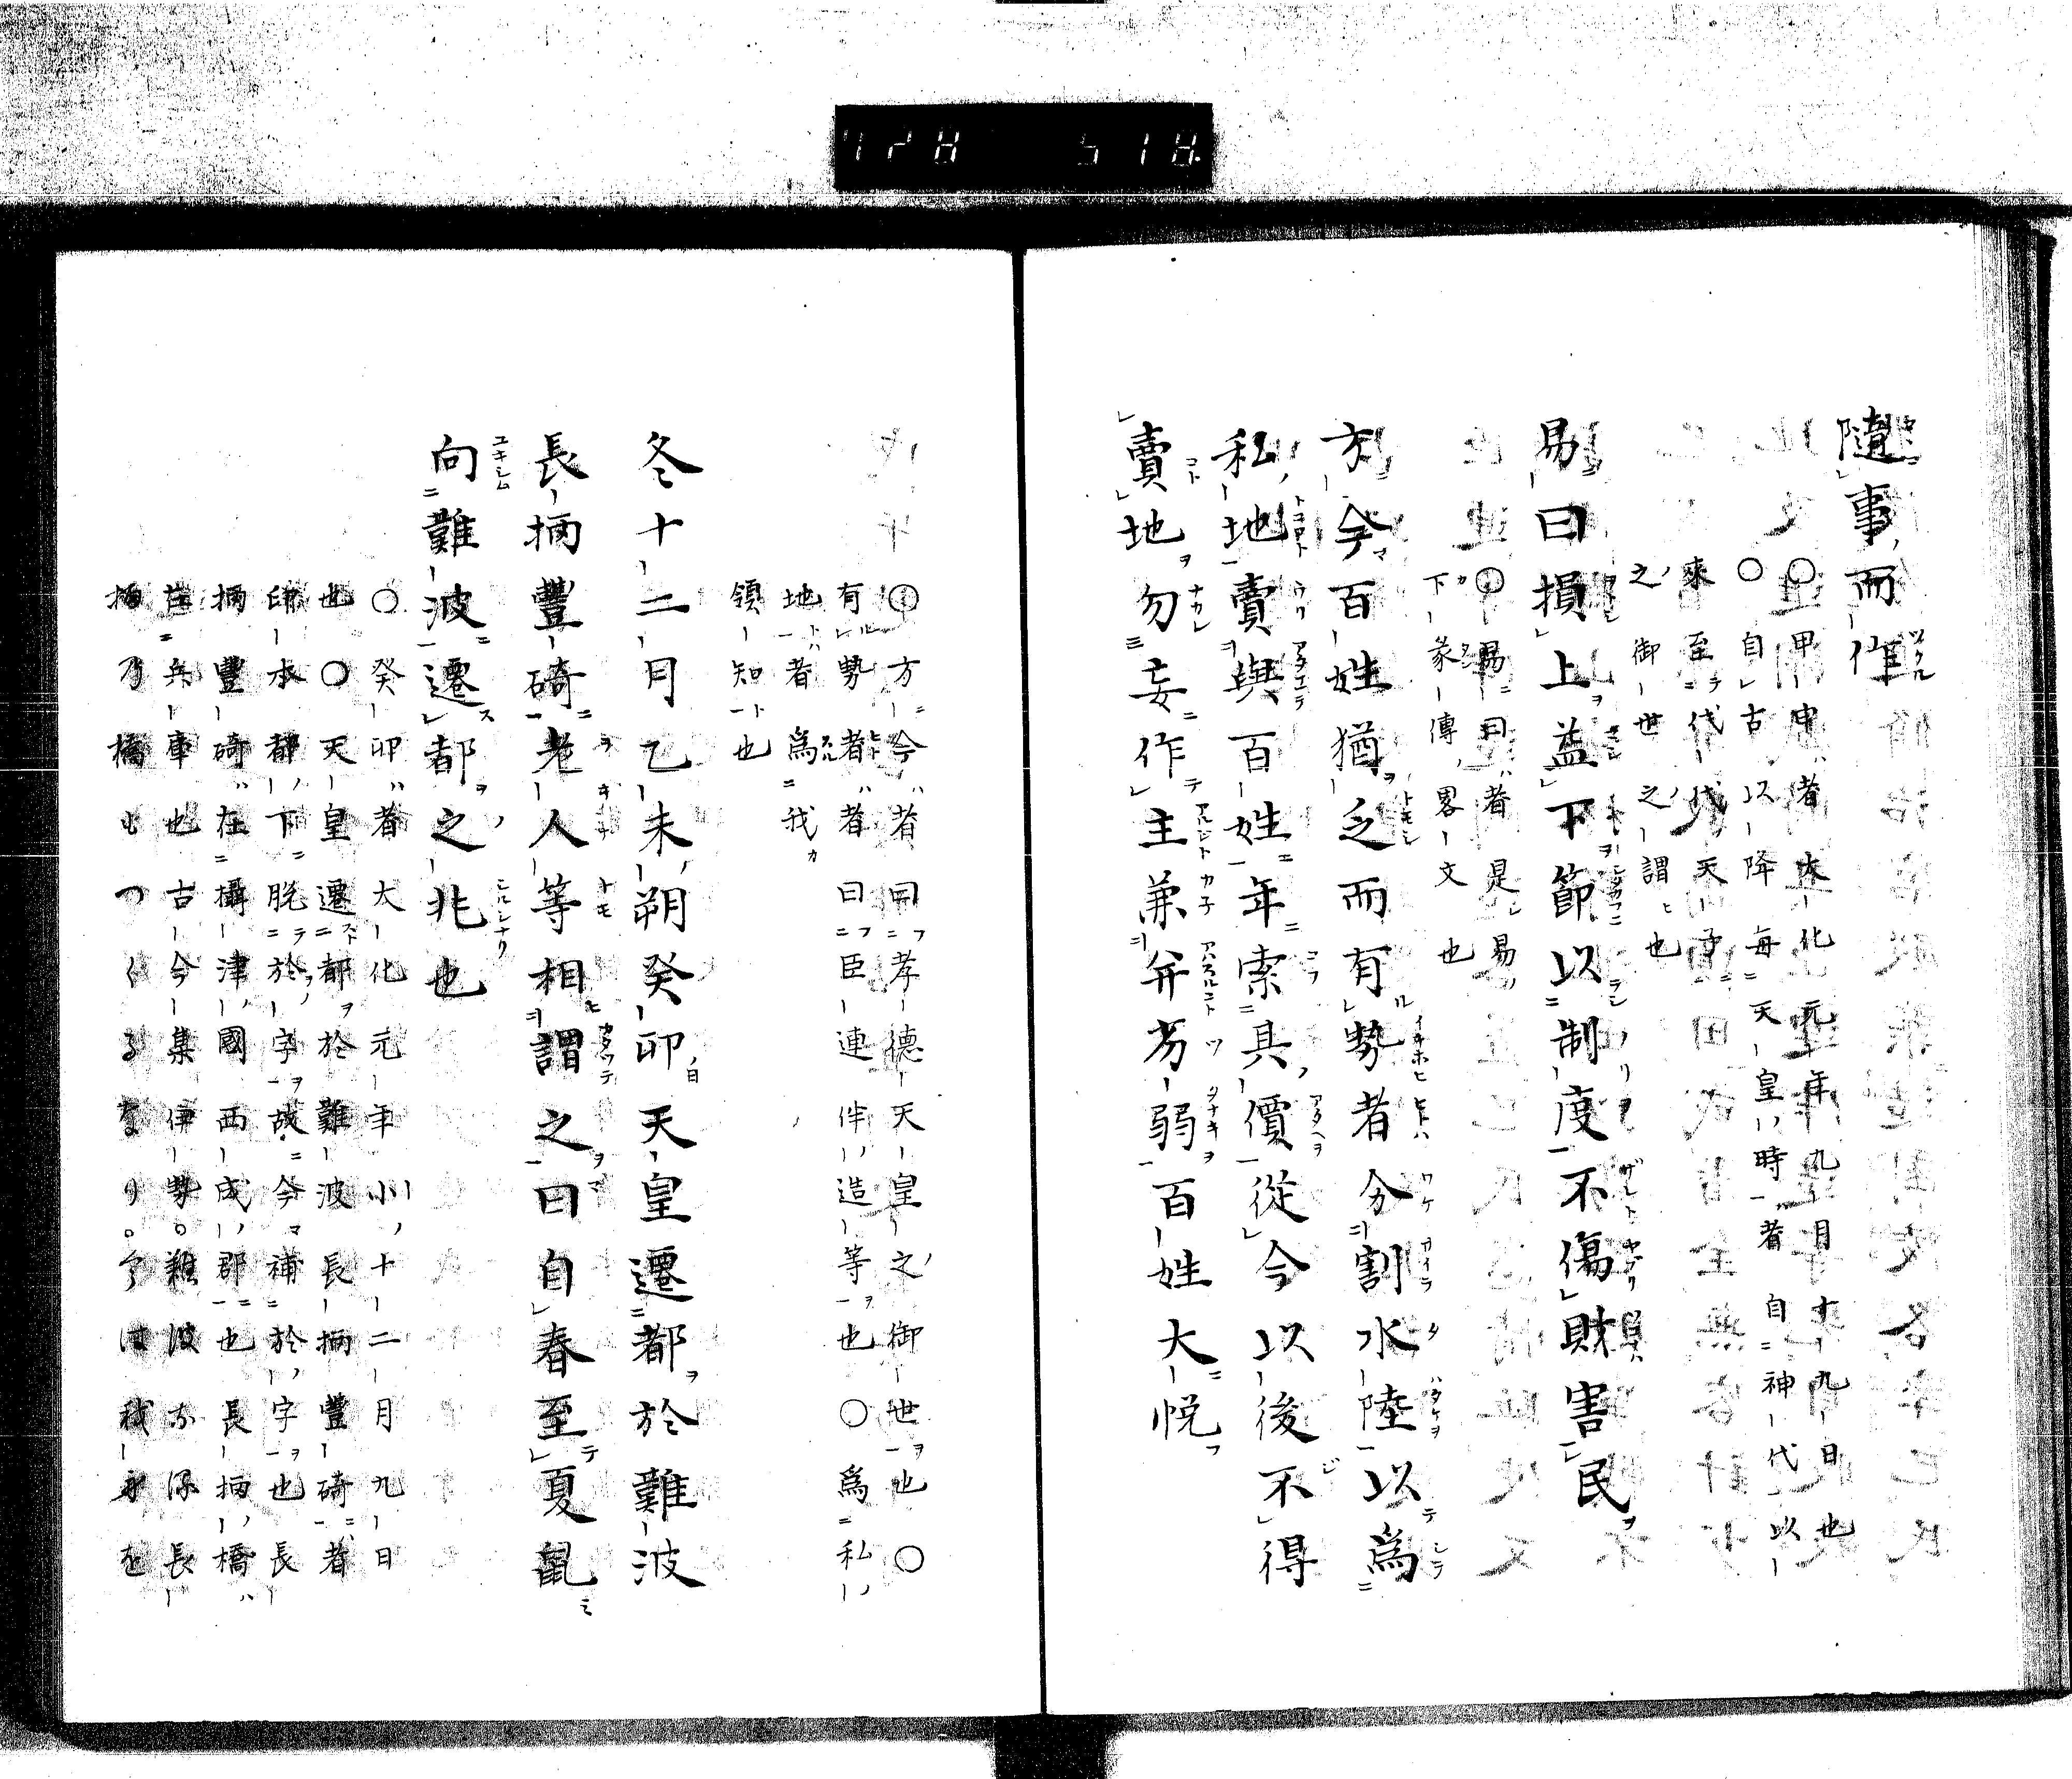 隨事而作
○甲申者大化元年九月十九日也
○自古以降毎天皇時者自神代以
來至代代天子
之御世之謂也
易曰損上益下節以制度不傷財害民
○易曰者是易
下彖傳畧文也
方今百姓猶乏而有勢者分割水陸以爲
私地賣與百姓年索其價從今以後不得
賣地勿妄作主兼并劣弱百姓大悦
○方今者曰孝德天皇之御世也○
有勢者者曰臣連伴造等也○爲私
地者爲我
領知也
冬十二月乙未朔癸卯天皇遷都於難波
長柄豐碕老人等相謂之曰自春至夏鼠
向難波遷都之兆也
○癸卯者大化元年小十二月九日
也○天皇遷都於難波長柄豐碕者
印本都下脱於字故今補於字也長
柄豐碕在攝津國西成郡也長柄橋
在兵庫也古今集伊勢。難波なる長
柄乃橋もつくるなり。今は我身を
728 518